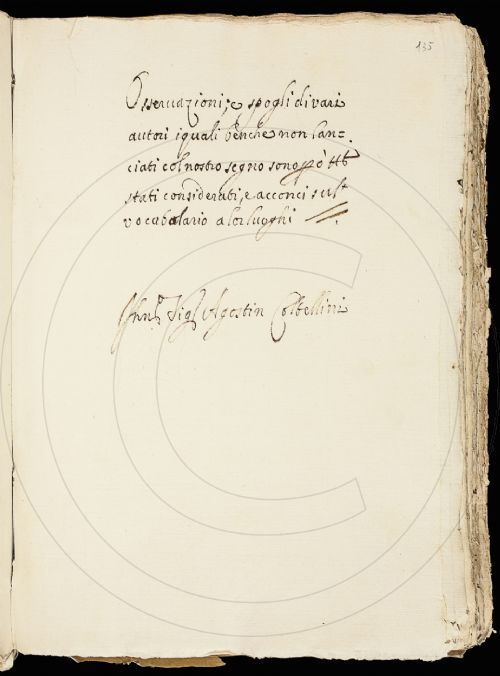 135
Osseruazioni, e spogli di vari
autori i quali benche non lan=
ciati col nostro segno sono però
stati considerati, e acconci sul
vocabalario a lor luoghi
Sig: Agostin Coltellini